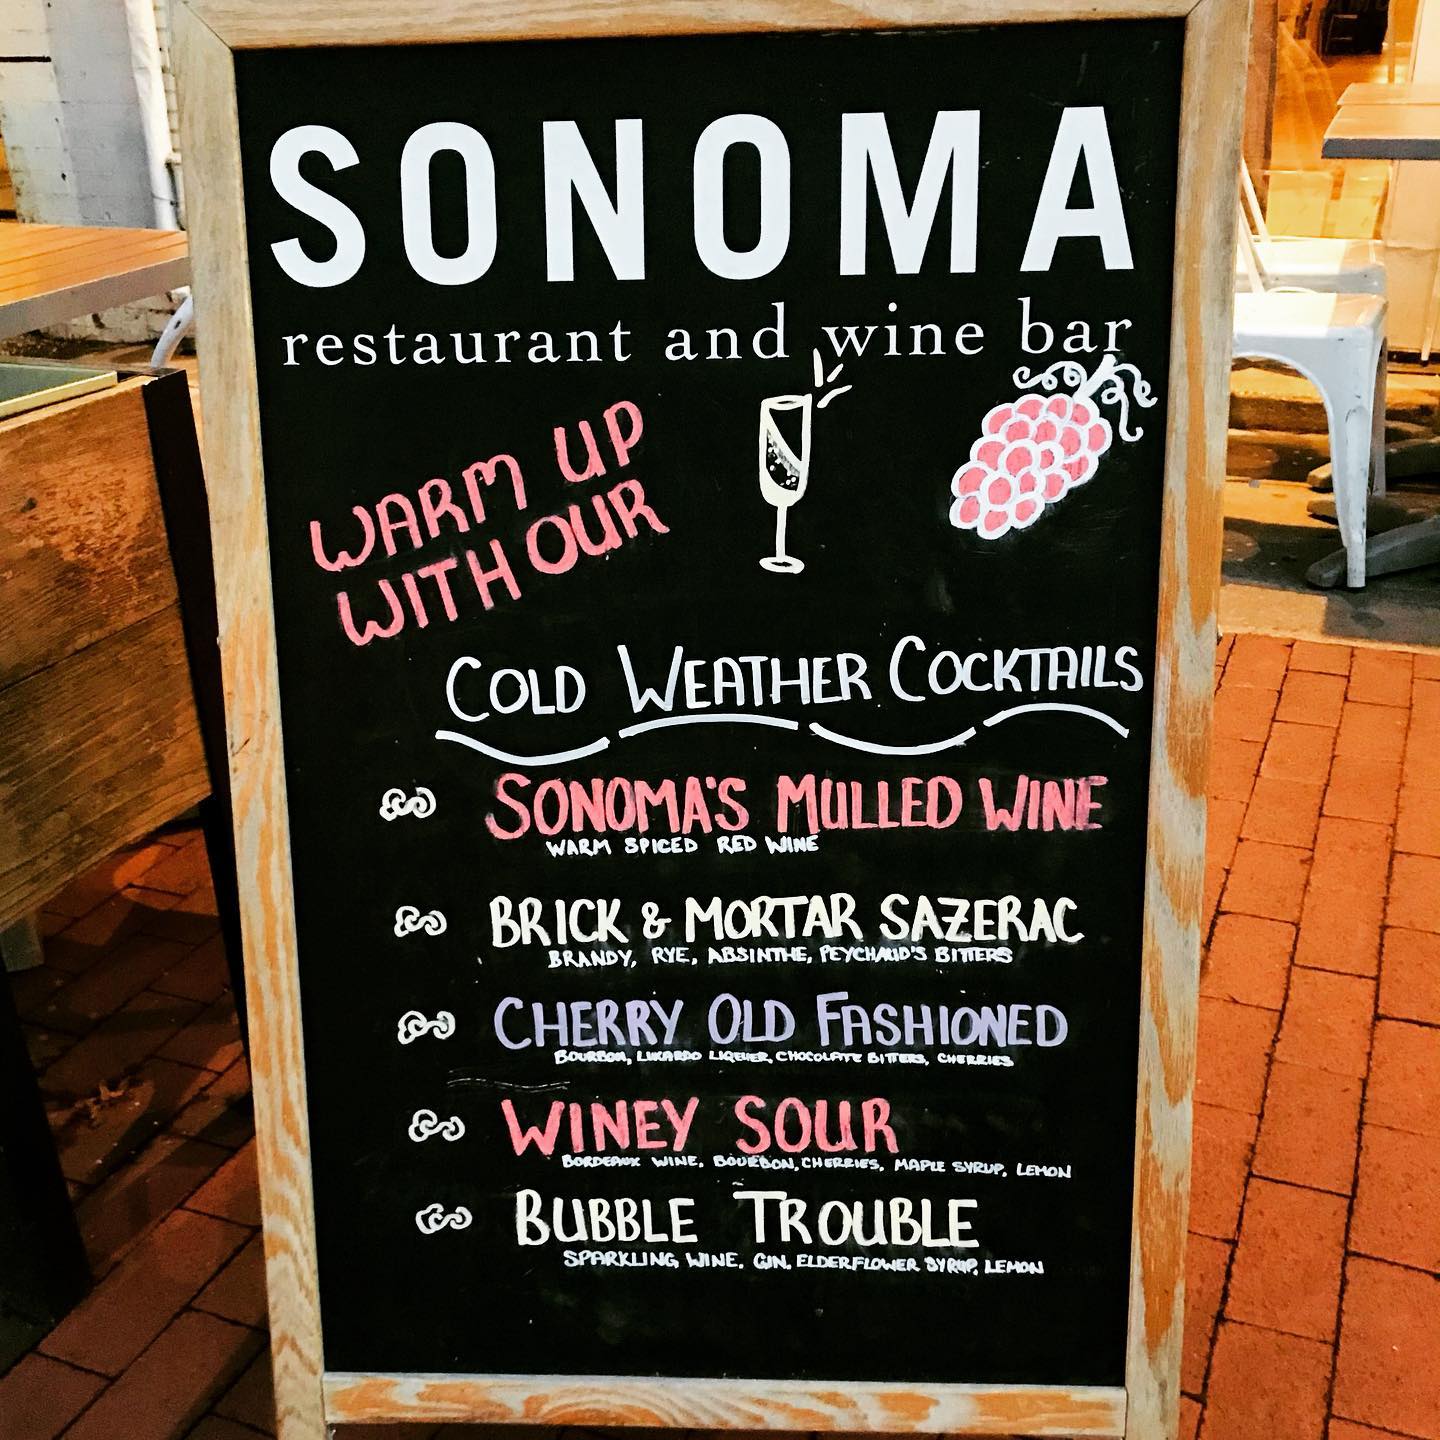 SONOMA
restaurant and wine bar
WARM UP
WITH OUR
COLD WEATHER COCKTAILS
SONOMA'S MULLED WINE
WARM SPICED RED WINE
BRICK & MORTAR SAZERAC
BRANDY, RYE, ABSINTHE, PEYCHAUD'S BITTERS
CHERRY OLD FASHIONED
BOURBON, LUXARDO LIQEUER, CHOCOLATE BITTERS, CHERRIES
WINEY SOUR
BORDEAUX WINE, BOURBON, CHERRIES, MAPLE SYRUP, LEMON
BUBBLE TROUBLE
SPARKLING WINE, GIN, ELDERFLOWER SYRUP, LEMON